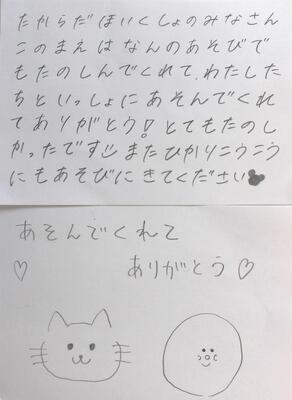 たからだほいくしょのみなさん
このまえはなんのあそびで
もたのしんでくれて、わたした
ちといっしょにあそんでくれ
てありがとう!とてもたのし
かったですまたひかりこうこう
にもあそびにきてください
あそんでくれて
♡ ありがとう♡